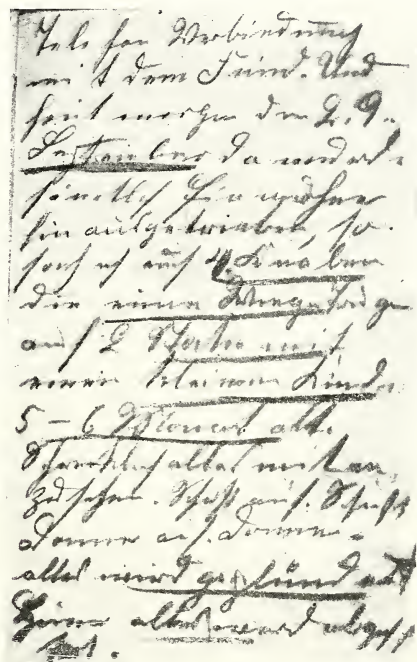 Tele fon Verbindung
mit dem Feind. Und
heut morgen den 2.9.
September da wurden
sämtlich Einwohner
hin ausgetrieben, so
sah ich auch 4 Knaben
die einen Wiege trügen
auf 2 Stäbe mit
einen kleinen Kinde
5-6 Monat alt.
Schrecklich alles mit an
zusehen. Schuß auf Schuß
Donner auf Donner.
alles wird geplündert
alles wird